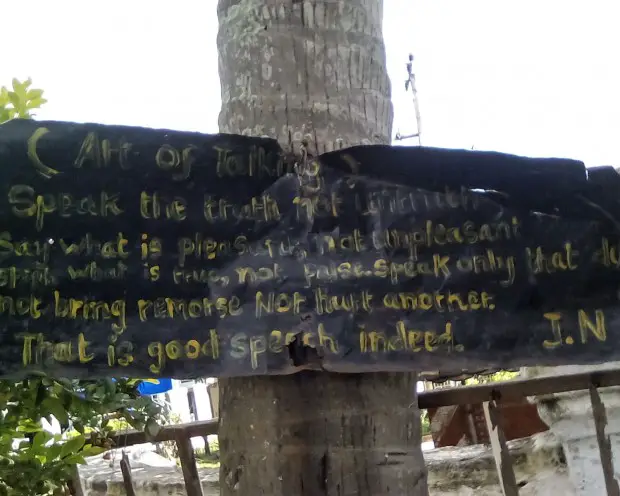 (Art of Talking)
Speak the truth not untruth
Say what is pleasant, not unpleasant
Speak what is true, not false. speak only that do
not bring remorse Nor hurt another.
That is good speech indeed. I.N